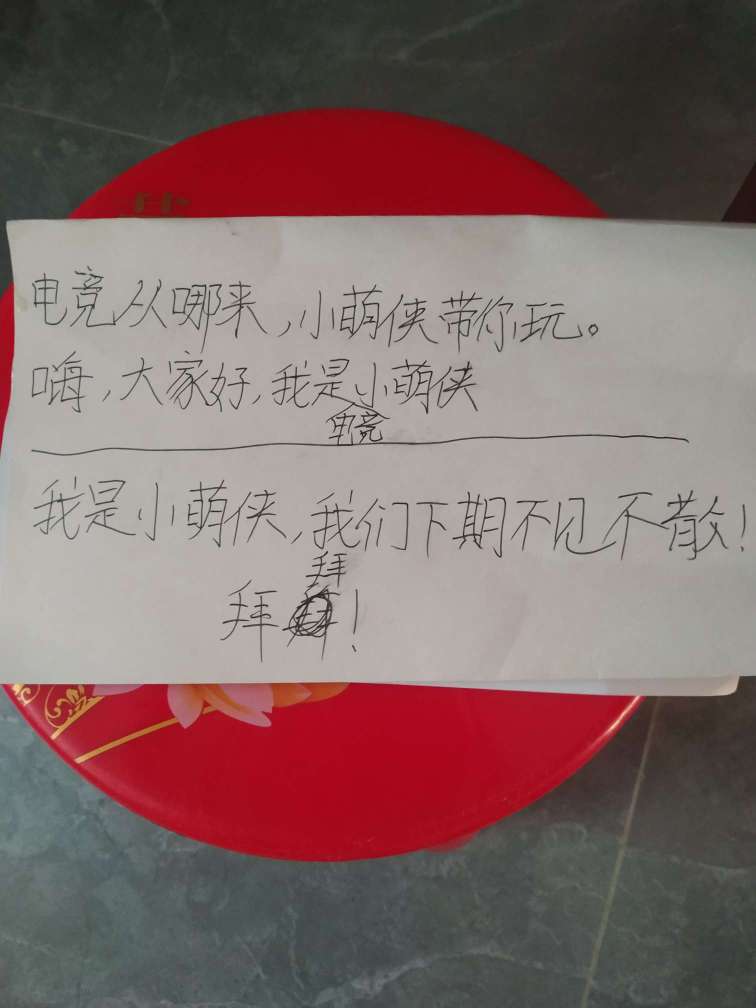 电竞从哪来,小萌侠带你玩。
嗨,大家好,我是电竞小萌侠
我是小萌侠,我们下期不见不散!
拜拜!